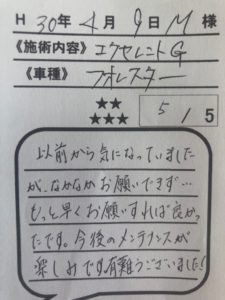 H 30年 4月 9日 M 様
《施術内容》エクセレントG
《車種》フォレスター
★★
★★★
5 / 5
以前から気になっていました
が、なかなかお願いできず…
もっと早くお願いすれば良かっ
たです。今後のメンテナンスが
楽しみです。有難うございました!